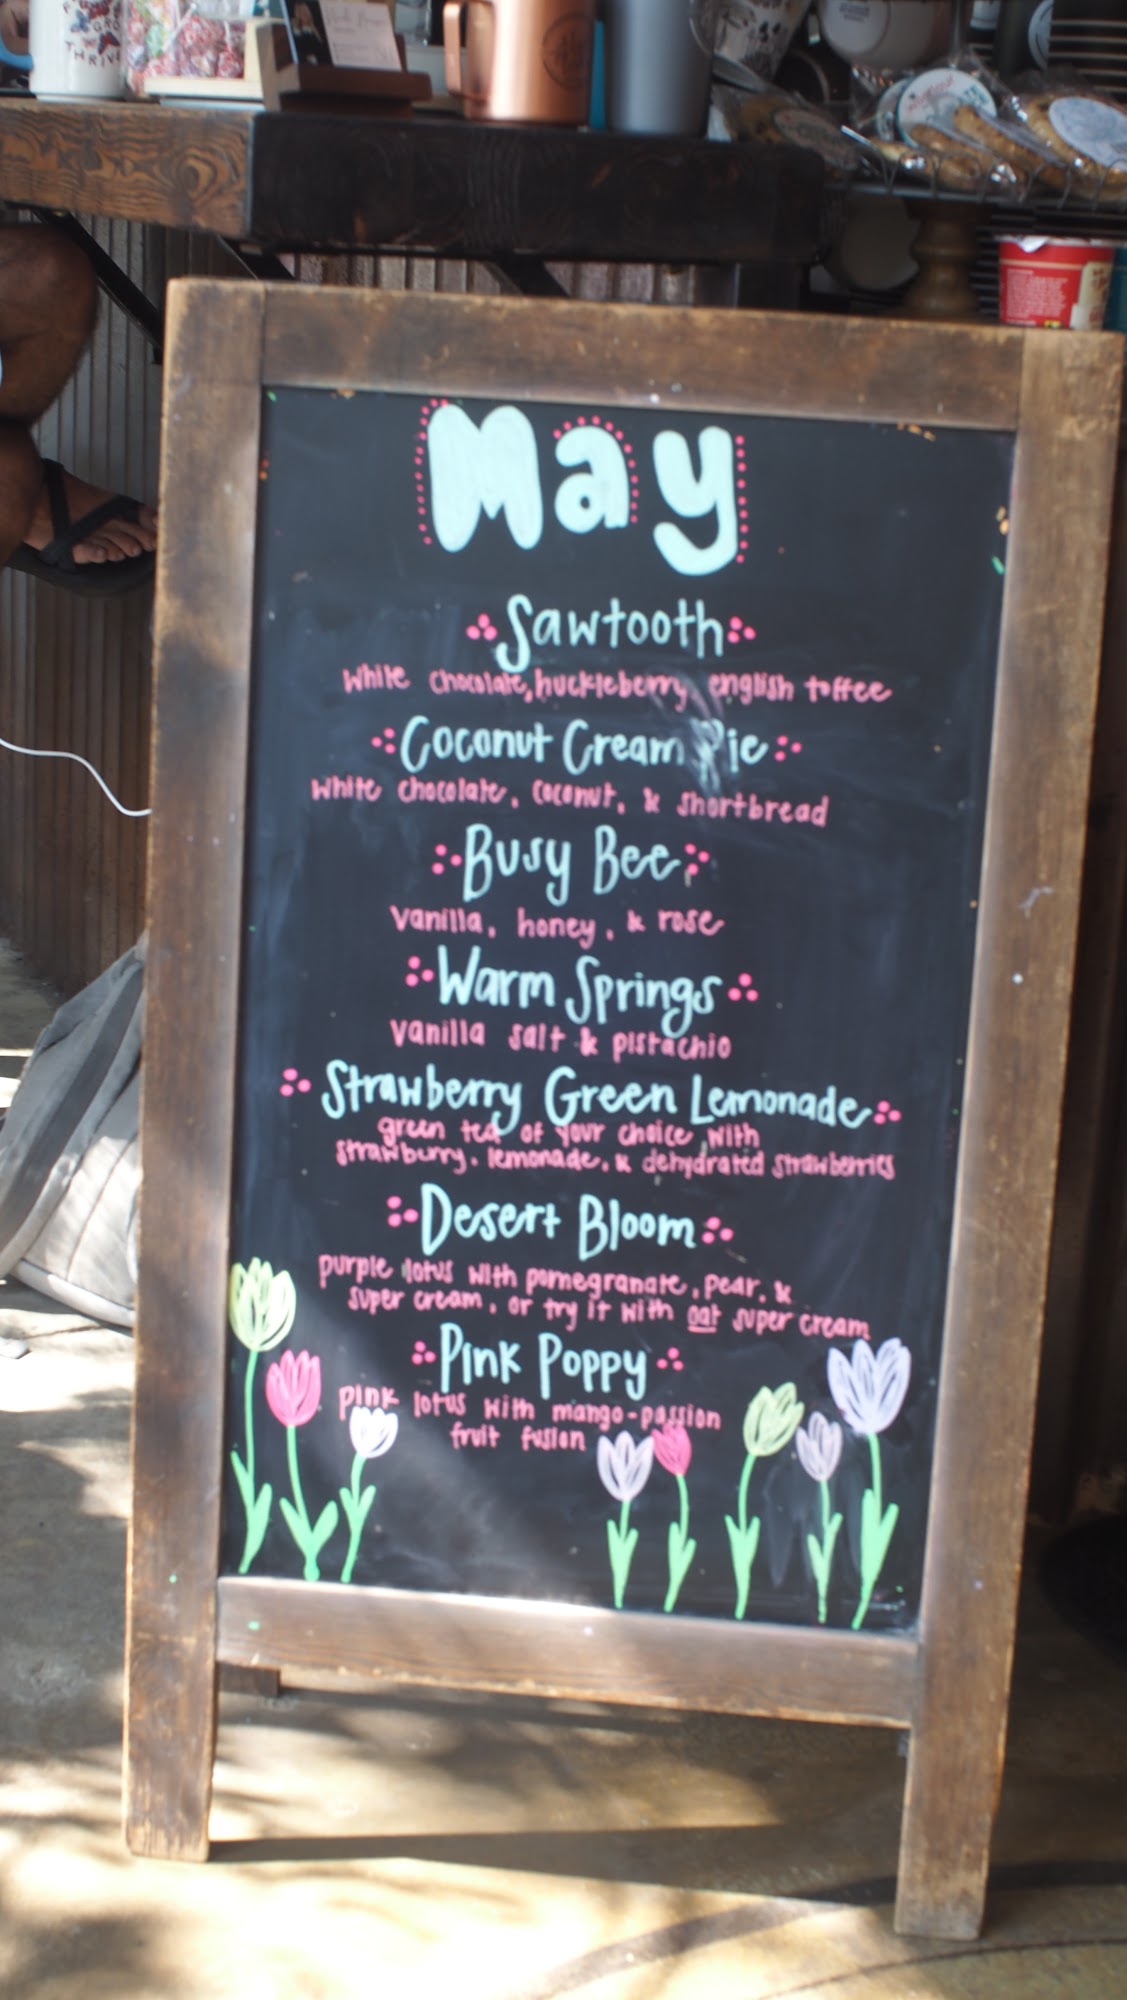 THRIVE
May
Sawtooth
white chocolate, huckleberry english toffee
Coconut Cream Pie
white chocolate, coconut, & shortbread
Busy Bee
vanilla, honey, & rose
Warm Springs
vanilla salt & pistachio
Strawberry Green Lemonade
green tea of your choice with
strawberry, lemonade, & dehydrated strawberries
Desert Bloom
purple lotus with pomegranate, pear, &
super cream, or try it with oat super cream
Pink Poppy
pink lotus with mango-passion
fruit fusion